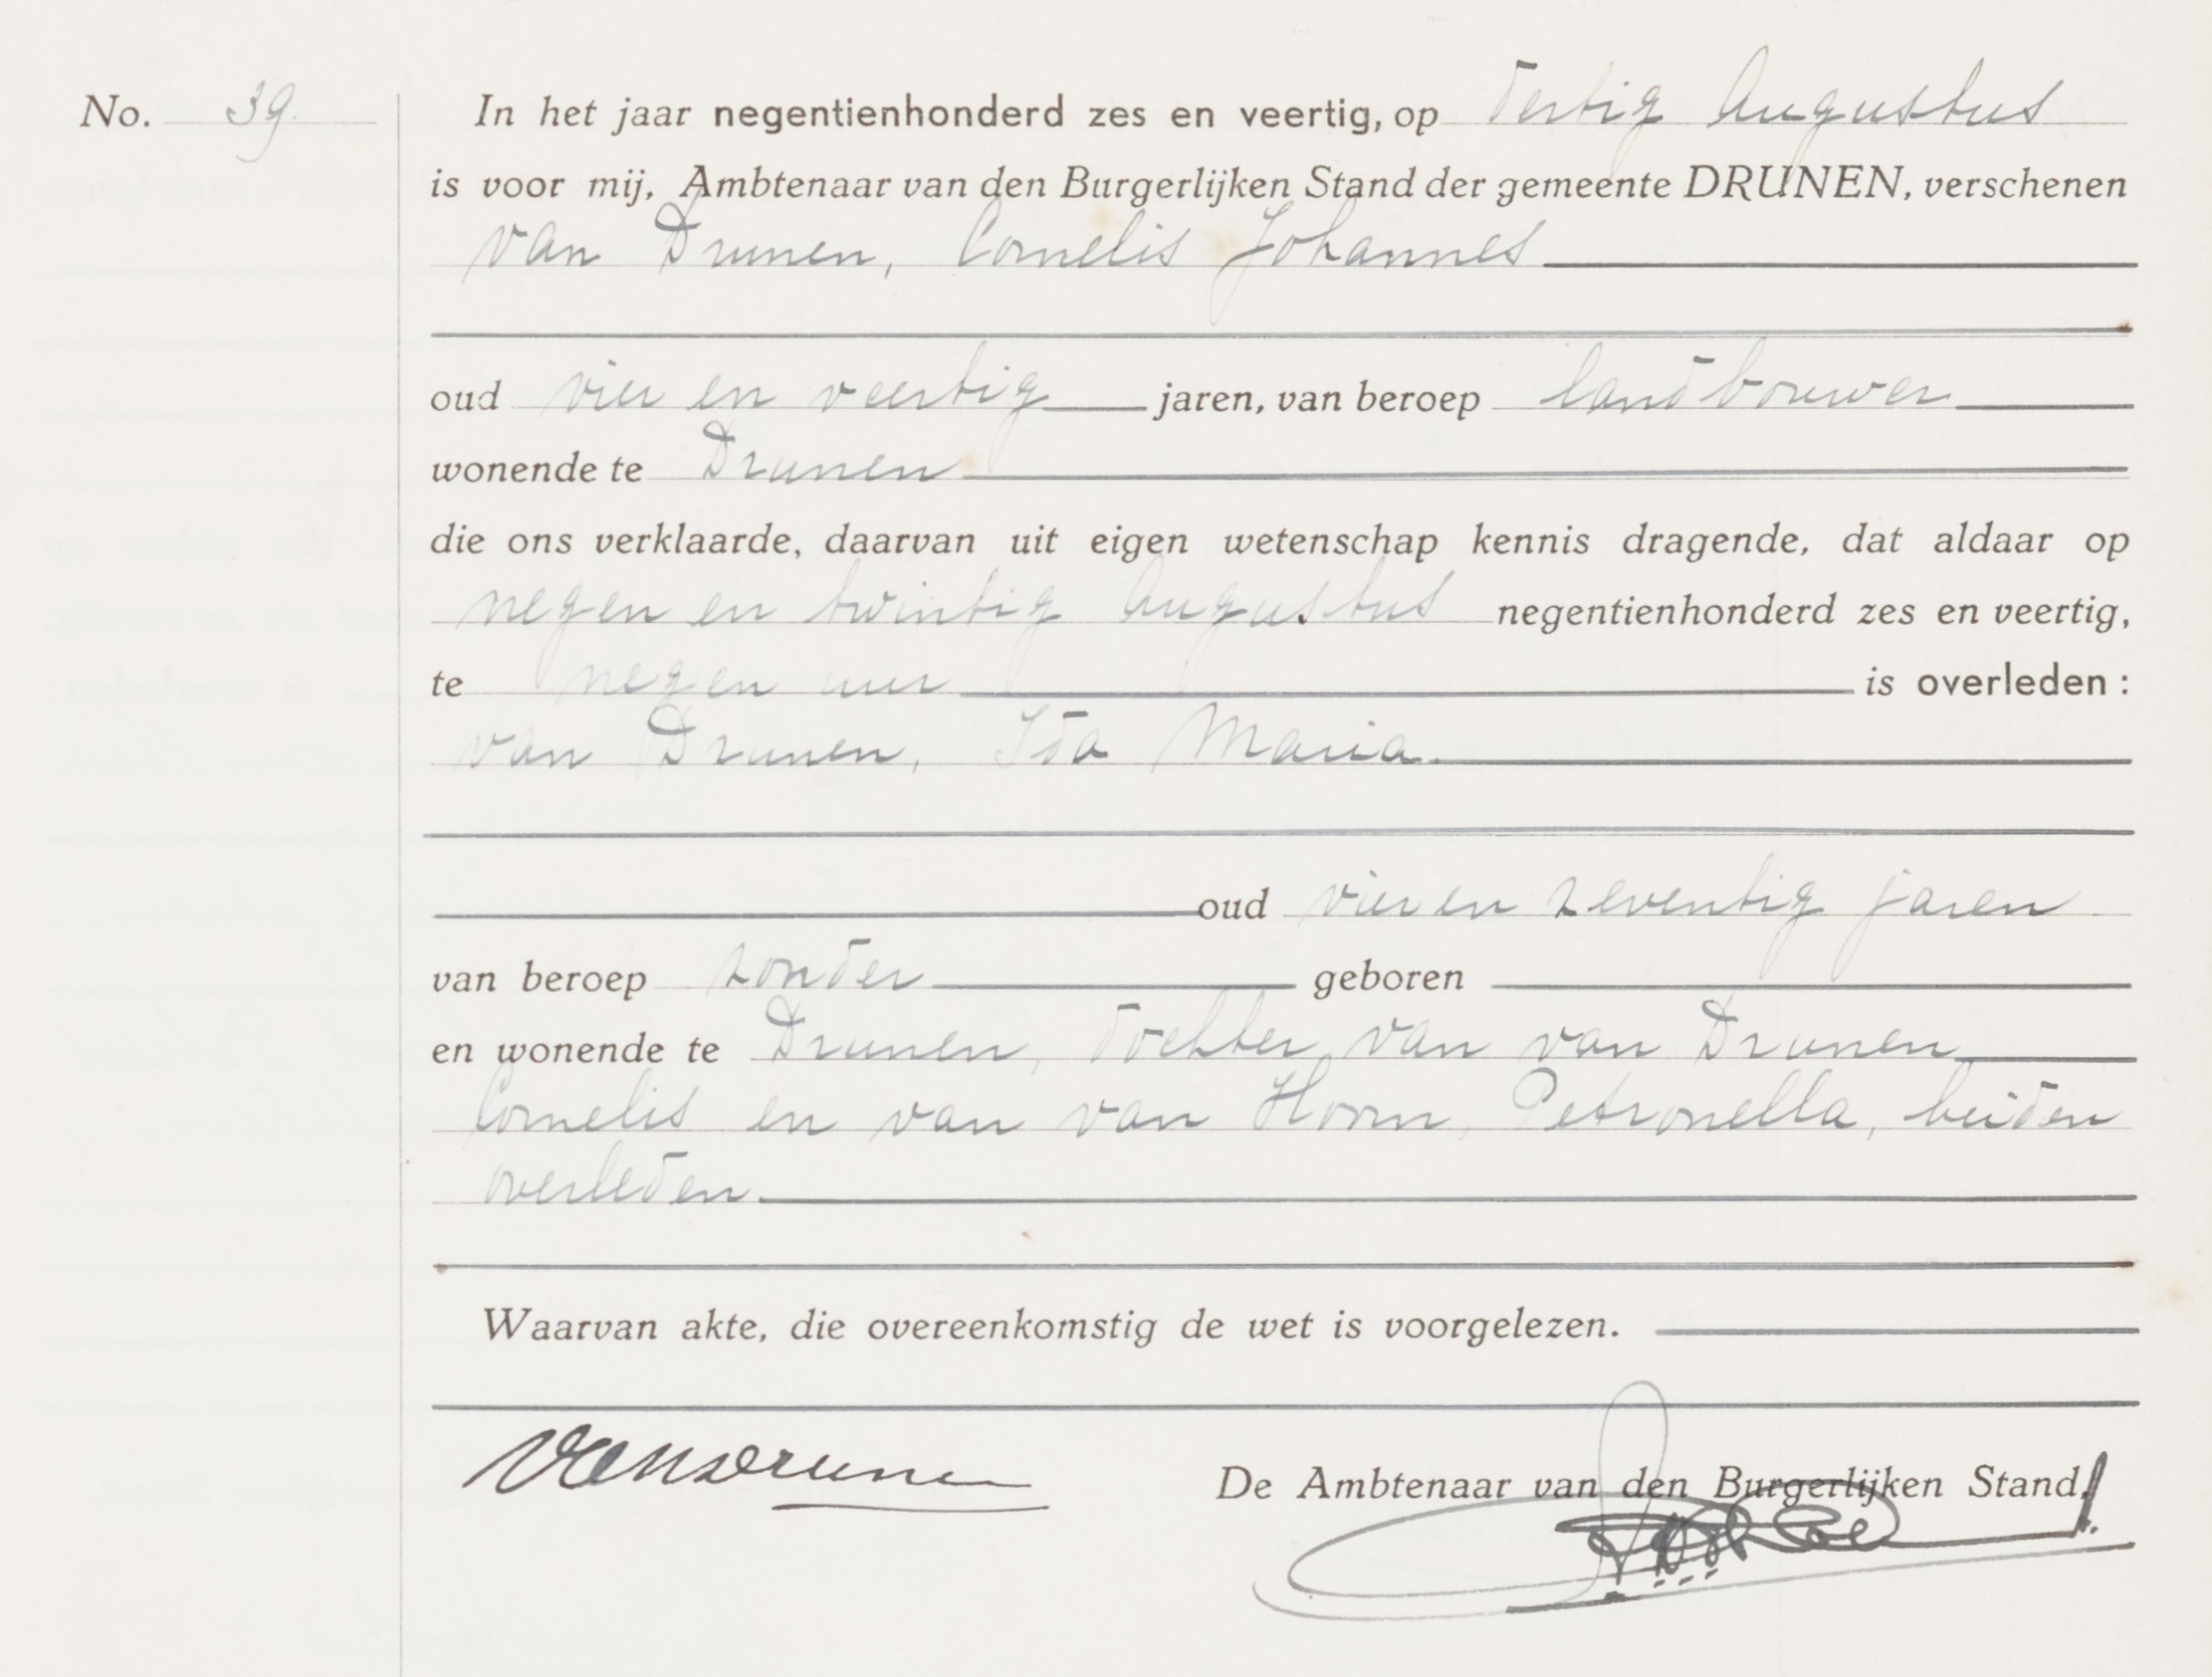 No. 39.
In het jaar negentienhonderd zes en veertig, op dertig Augustus
is voor mij, Ambtenaar van den Burgerlijken Stand der gemeente DRUNEN, verschenen
van Drunen, Cornelis Johannes
oud vier en veertig jaren, van beroep landbouwer
wonende te Drunen
die ons verklaarde, daarvan uit eigen wetenschap kennis dragende, dat aldaar op
negen en twintig Augustus negentienhonderd zes en veertig,
te negen uur is overleden :
van Drunen, Ida Maria.
oud vier en zeventig jaren
van beroep zonder geboren
en wonende te Drunen, dochter van van Drunen,
Cornelis en van van Hoorn, Petronella, beiden
overleden.
Waarvan akte, die overeenkomstig de wet is voorgelezen.
van Drunen
De Ambtenaar van den Burgerlijken Stand,